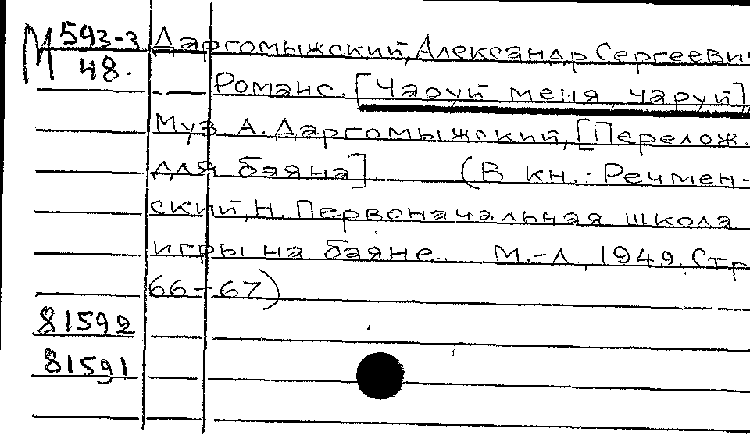 М 593-3
48.
Даргомыжский, Александр Сергеевич
Романс. [Чаруй меня, чаруй]
Муз. А. Даргомыжский, [Перелож.
для баяна] (В кн.: Речмен-
ский, Н. Первоначальная школа
игры на баяне. М.-Л., 1949. Стр
66-67)
81592
81591